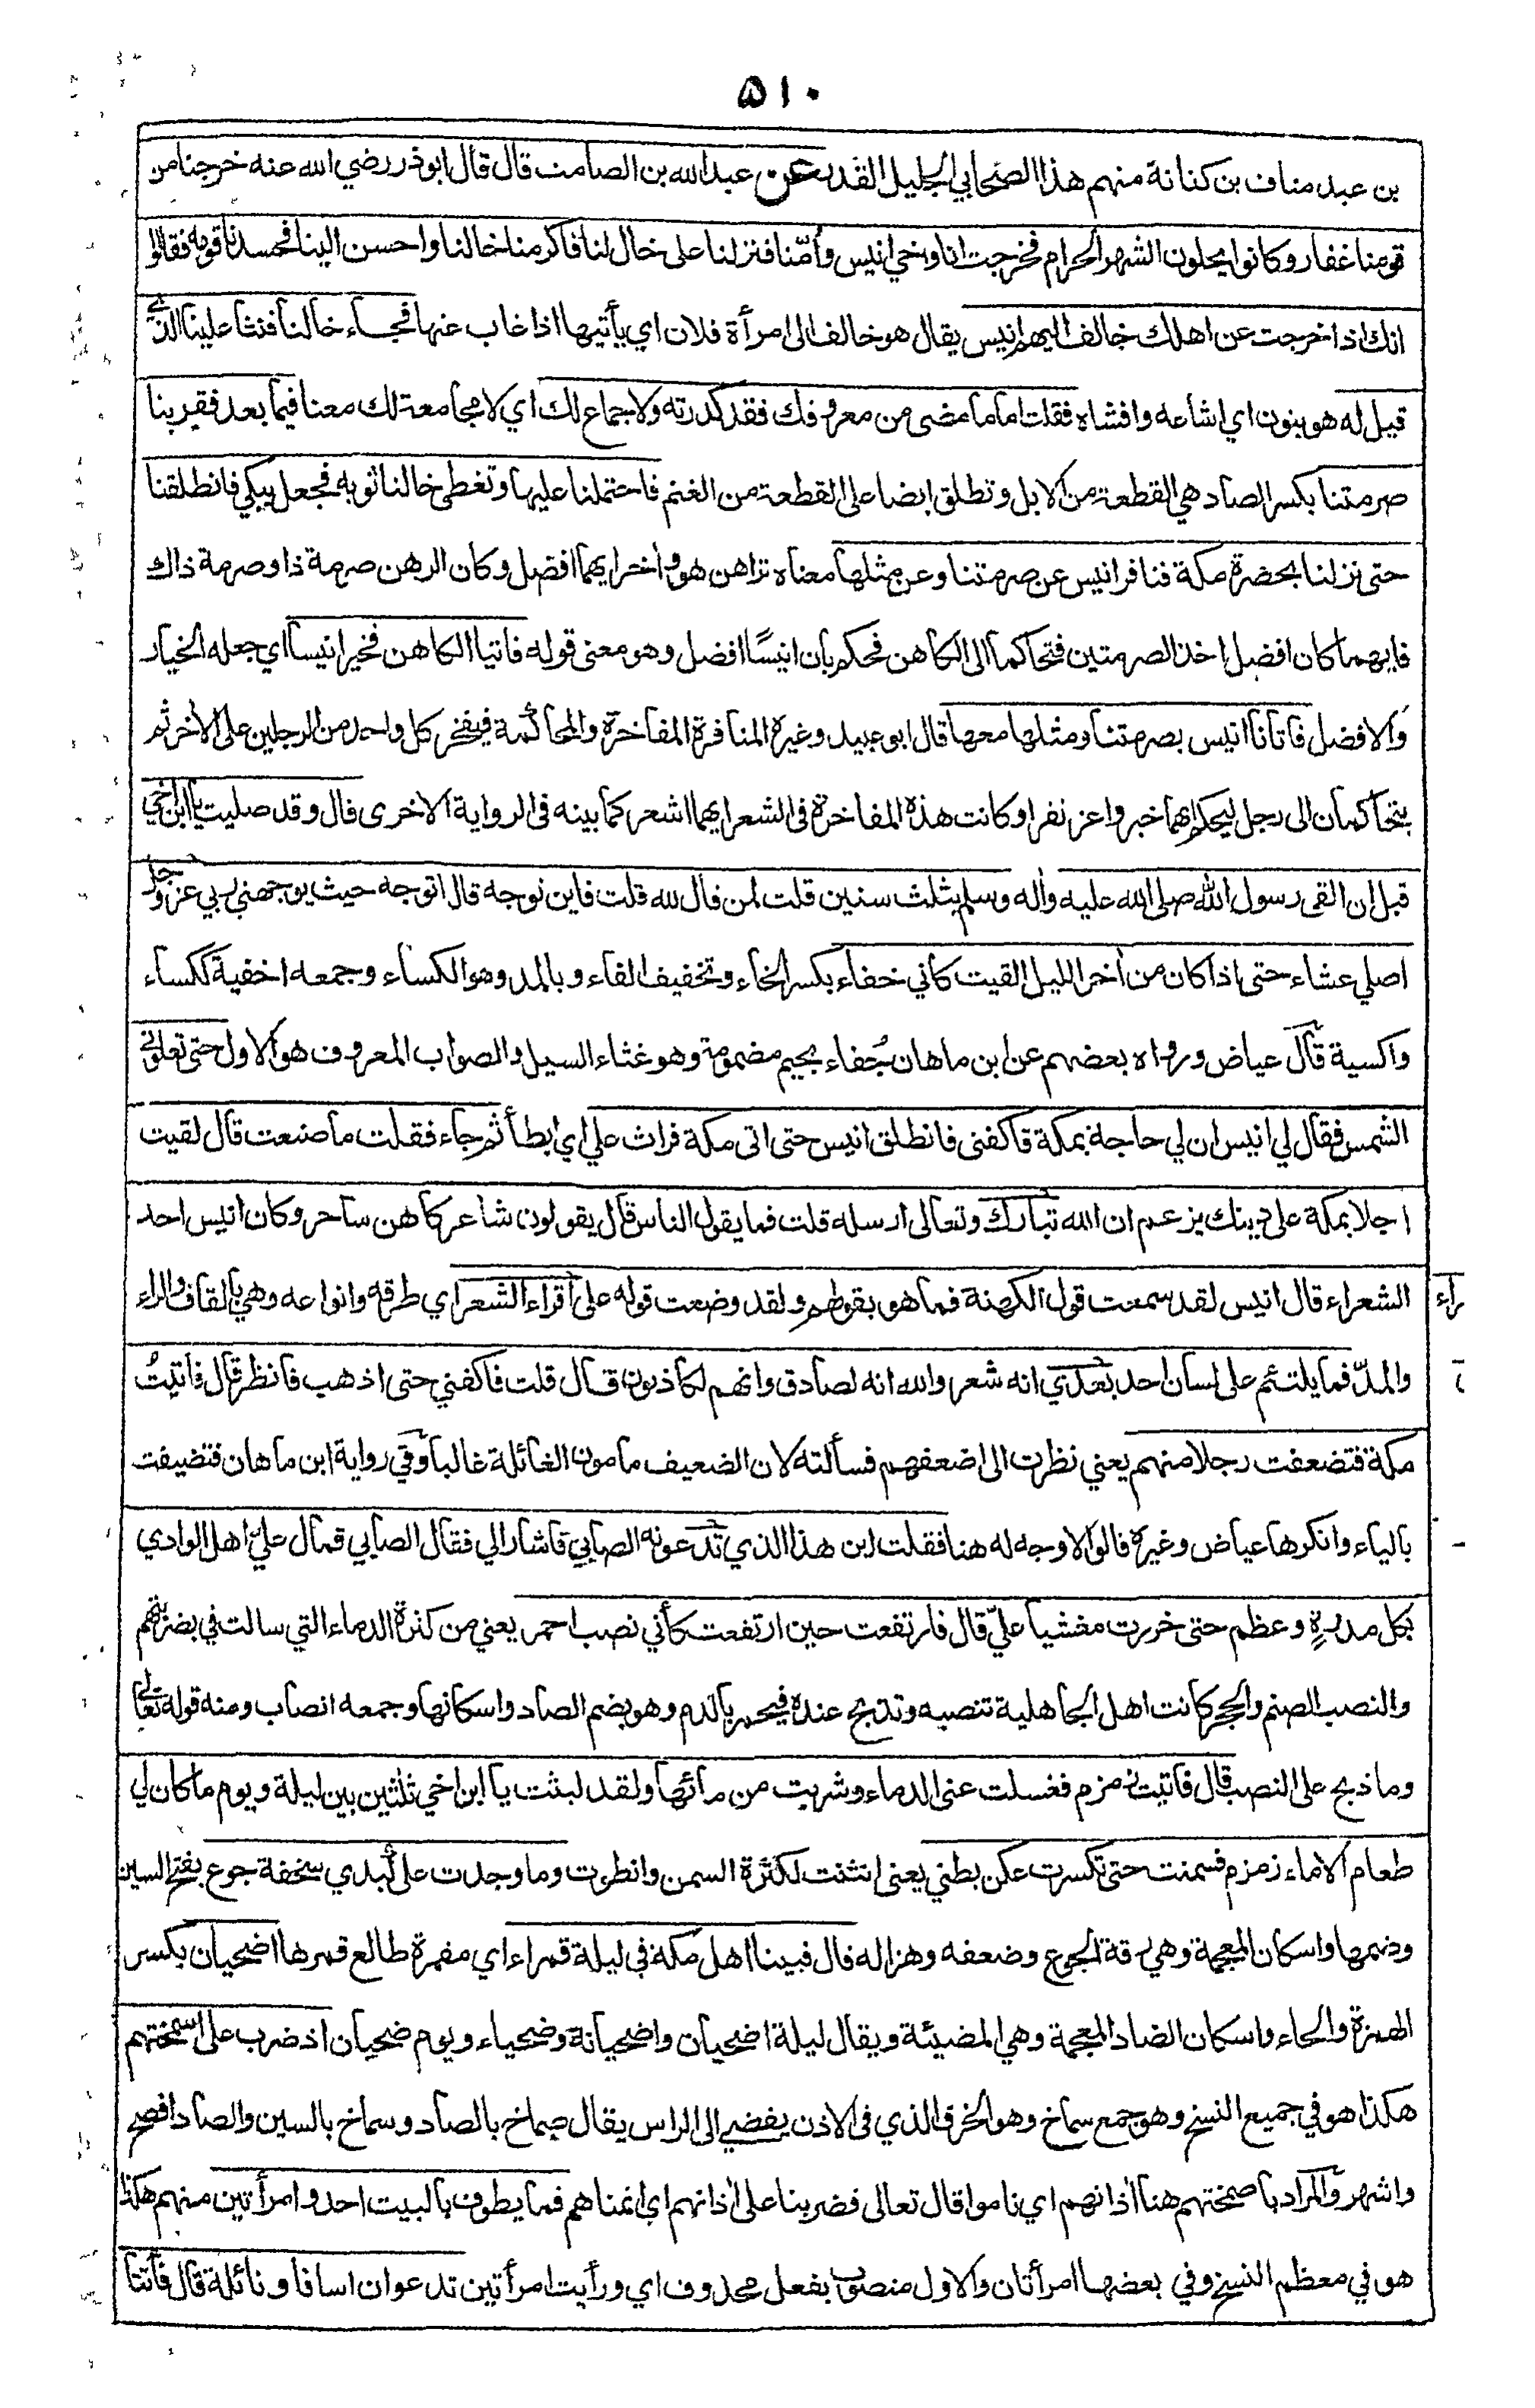 ٥١٠
بن عبد مناف بن كنانة منهم هذا الصحابي الجليل القدر عن عبدالله بن الصامت قال قال ابوذر رضي الله عنه خرجنا من
قومنا غفار وكانوا يحلون الشهر الحرام فخرجت انا واخي انيس وأمّنا فنزلنا على خال لنا فاكرمنا خالنا واحسن الينا فحسدنا قومه فقالوا
انك اذا خرجت عن اهلك خالف اليهم انيس يقال هو خالف الى امرأة فلان اي يأتيها اذا غاب عنها فجاء خالنا فنثا علينا الذي
قيل له هو بنون اي اشاعه وافشاه فقلت اما ما مضى من معروفك فقد كدرته ولا جماع لك اي لا مجامعة لك معنا فيما بعد فقربنا
صرمتنا بكسر الصاد هي القطعة من الابل وتطلق ايضا على القطعة من الغنم فاحتملنا عليها وتغطى خالنا ثوبه فجعل يبكي فانطلقنا
حتى نزلنا بحضرة مكة فنافر انيس عن صرمتنا وعن مثلها معناه تراهن هو واخر ايهما افضل وكان الرهن صرمة ذا وصرمة ذاك
فايهما كان افضل اخذ الصرمتين فتحاكما الى الكاهن فحكم بان انيسًا افضل وهو معنى قوله فاتيا الكاهن فخير انيسا اي جعله الخيار
والافضل فاتانا انيس بصرمتنا ومثلها معها قال ابو عبيد وغيره المنافرة المفاخرة والمحاكمة فيفخر كل واحد من الرجلين على الأخر ثم
يتحاكمان الى رجل ليحكم ايهما خير واعز نفرا وكانت هذه المفاخرة في الشعر ايهما اشعر كما بينه في الرواية الاخرى قال وقد صليت يا ابن اخي
قبل ان القى رسول الله صلى الله عليه وأله وسلم بثلث سنين قلت لمن قال لله قلت فاين توجه قال اتوجه حيث يوجهني ربي عز وجل
اصلي عشاء حتى اذا كان من أخر الليل القيت كاني خفاء بكسر الخاء وتخفيف الفاء وبالمد وهو الكساء وجمعه اخفية ككساء
واكسية قال عياض ورواه بعضهم عن ابن ماهان جُفاء بجيم مضمومة وهو غثاء السيل والصواب المعروف هو الاول حتى تعلوني
الشمس فقال لي انيس ان لي حاجة بمكة فاكفنى فانطلق انيس حتى اتى مكة فراث علي اي ابطأ ثم جاء فقلت ما صنعت قال لقيت
رجلا بمكة على دينك يزعم ان الله تبارك وتعالى ارسله قلت فما يقول الناس قال يقولون شاعر كاهن ساحر وكان انيس احد
الشعراء قال انيس لقد سمعت قول الكهنة فما هو بقولهم ولقد وضعت قوله على أقراء الشعر اي طرقه وانواعه وهي بالقاف والراء
والمدّ فما يلتئم على لسان احد بعدي انه شعر والله انه لصادق وانهم لكاذبون قال قلت فاكفني حتى اذهب فانظر قال فاتيتُ
مكة فتضعفت رجلا منهم يعني نظرت الى اضعفهم فسألته لان الضعيف مامون الغائلة غالبا وفي رواية ابن ماهان فتضيفت
بالياء وانكرها عياض وغيره قالوا لا وجه له هنا فقلت اين هذا الذي تدعونه الصابي فاشار الي فقال الصابي فمال عليّ اهل الوادي
بكل مدرةٍ وعظم حتى خررت مغشيا عليّ قال فارتفعت حين ارتفعت كأني نصب احمر يعني من كثرة الدماء التي سالت في بضربتهم
والنصب الصنم والحجر كانت اهل الجاهلية تنصبه وتذبح عنده فيحمر بالدم وهو بضم الصاد واسكانها وجمعه انصاب ومنه قوله تعالى
وما ذبح على النصب قال فاتيت زمزم فغسلت عنى الدماء وشربت من مائها ولقد لبثت يا ابن اخي ثلثين بين ليلة ويوم ما كان لي
طعام الا ماء زمزم فسمنت حتى تكسرت عكن بطني يعنى انثنت لكثرة السمن وانطوت وما وجدت على كبدي سخفة جوع بفتح السين
وضمها واسكان المعجمة وهي رقة الجوع وضعفه وهزاله قال فبينا اهل مكة في ليلة قمراء اي مقمرة طالع قمرها اضحيان بكسر
الهمزة والحاء واسكان الضاد المعجمة وهي المضيئة ويقال ليلة اضحيان واضحيانة وضحياء ويوم ضحيان اذ ضرب على اسمختهم
هكذا هو في جميع النسخ وهو جمع سماخ وهو الخرق الذي فى الاذن يفضي الى الراس يقال صماخ بالصاد وسماخ بالسين والصاد افصح
واشهر والمراد باصمختهم هنا أذانهم اي ناموا قال تعالى فضربنا على أذانهم اي انمناهم فما يطوف بالبيت احد وامرأتين منهم هكذا
هو في معظم النسخ وفي بعضها امرأتان والاول منصوب بفعل محذوف اي ورأيت امرأتين تدعوان اسافا ونائلة قال فأتتا